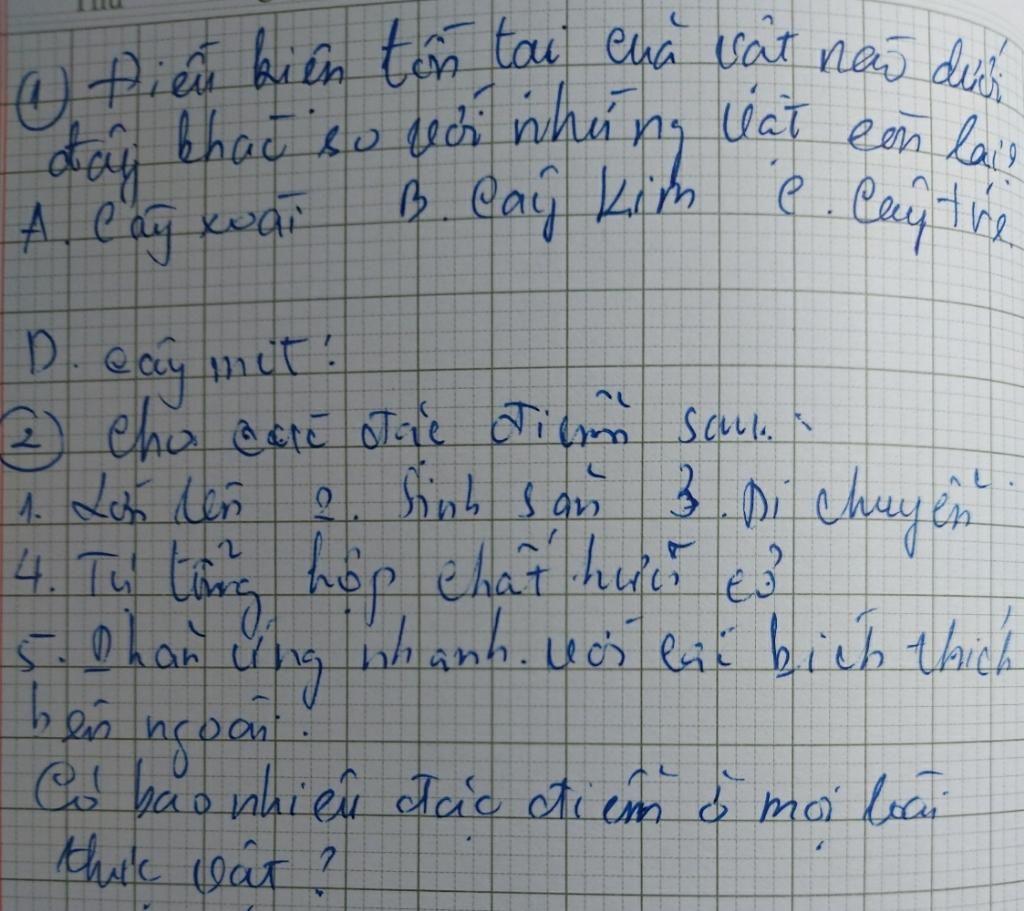 Thứ
① Điều kiện tồn tại của vật nào dưới
đây khác so với những vật còn lại?
A. Cây xoài B. Cây kim C. Cây tre
D. cây mít!
② Cho các đặc điểm sau:
1. Lớn lên 2. Sinh sản 3. Di chuyển
4. Tự tổng hợp chất hữu cơ
5. Phản ứng nhanh với các kích thích
bên ngoài.
Có bao nhiêu đặc điểm ở mọi loài
thực vật?